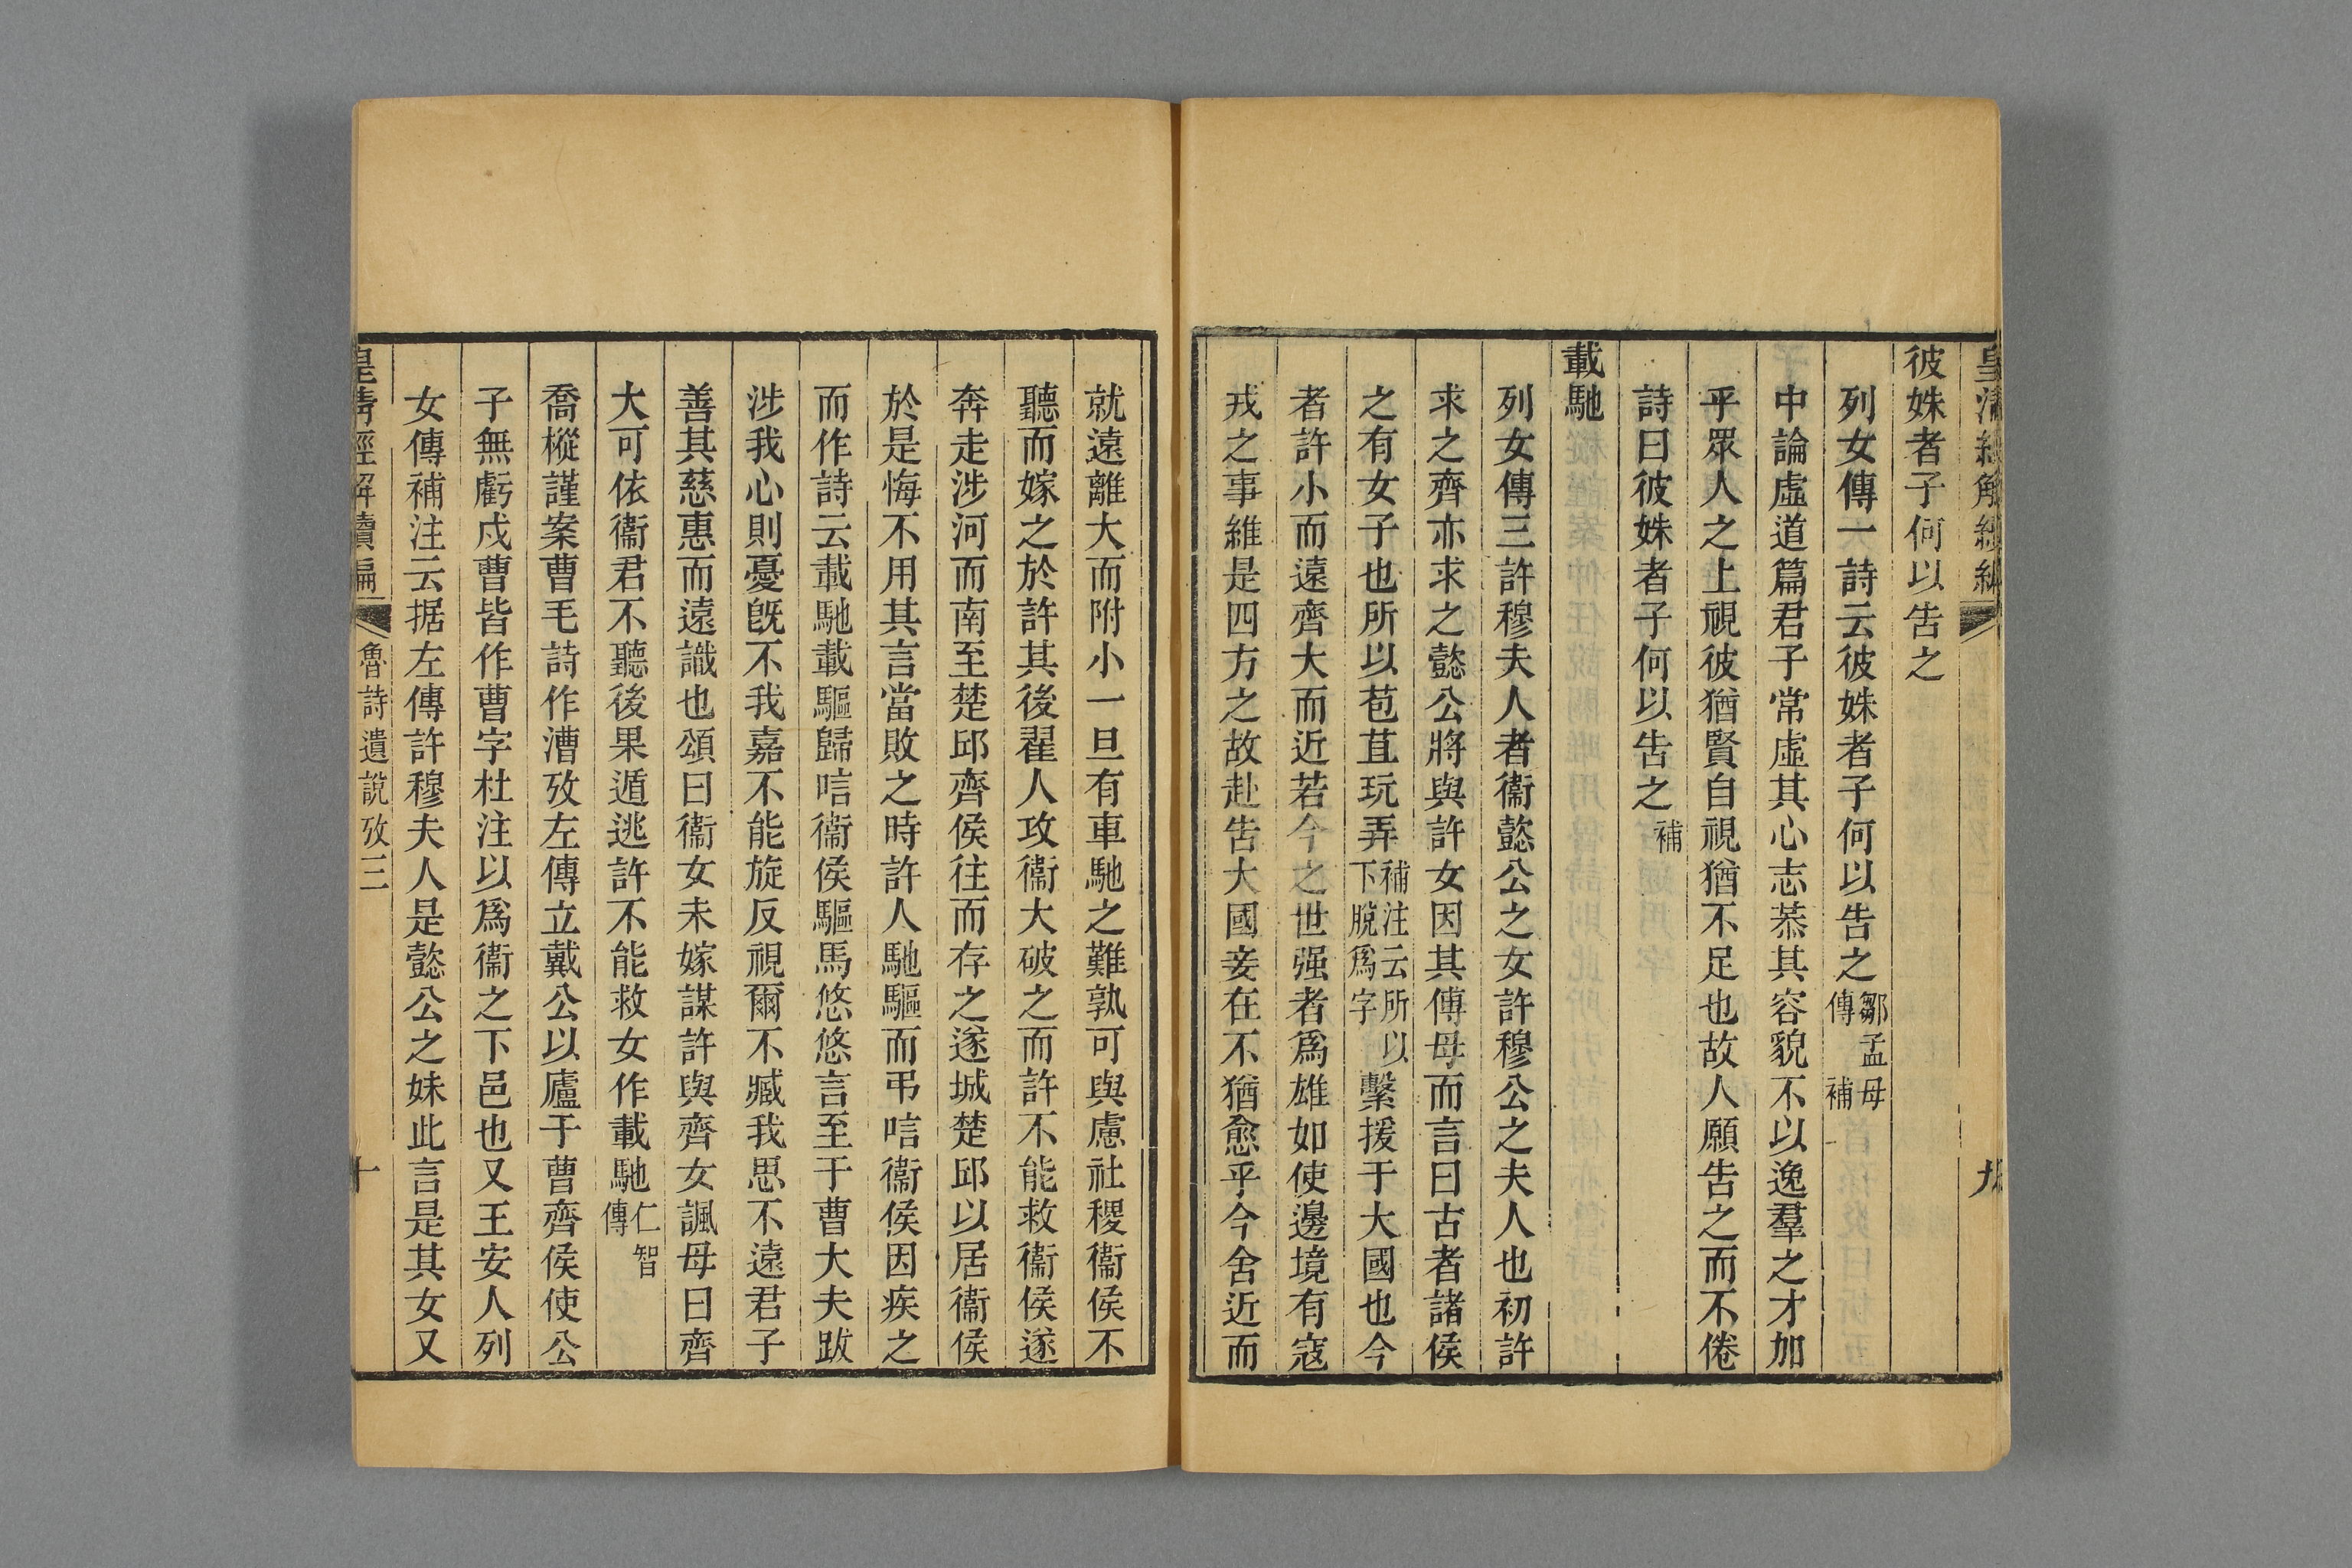 彼姝者子何以告之
列女傳一詩云彼姝者子何以告之鄒孟母傳補
中論虛道篇君子常虛其心志恭其容貌不以逸羣之才加
乎眾人之上視彼猶賢自視猶不足也故人願告之而不倦
詩曰彼姝者子何以告之補
載馳
列女傳三許穆夫人者衞懿公之女許穆公之夫人也初許
求之齊亦求之懿公將與許女因其傅母而言曰古者諸侯
之有女子也所以苞苴玩弄補注云所以下脫爲字繫援于大國也今
者許小而遠齊大而近若今之世强者爲雄如使邊境有寇
戎之事維是四方之故赴告大國妾在不猶愈乎今舍近而
就遠離大而附小一旦有車馳之難孰可與慮社稷衞侯不
聽而嫁之於許其後翟人攻衞大破之而許不能救衞侯遂
奔走涉河而南至楚邱齊侯往而存之遂城楚邱以居衞侯
於是悔不用其言當敗之時許人馳驅而弔唁衞侯因疾之
而作詩云載馳載驅歸唁衞侯驅馬悠悠言至于曹大夫跋
涉我心則憂旣不我嘉不能旋反視爾不臧我思不遠君子
善其慈惠而遠識也頌曰衞女未嫁謀許與齊女諷母曰齊
大可依衞君不聽後果遁逃許不能救女作載馳仁智傳
喬樅謹案曹毛詩作漕攷左傳立戴公以廬于曹齊侯使公
子無虧戍曹皆作曹字杜注以爲衞之下邑也又王安人列
女傳補注云据左傳許穆夫人是懿公之妹此言是其女又
皇清經解續編 魯詩遺說攷三 十